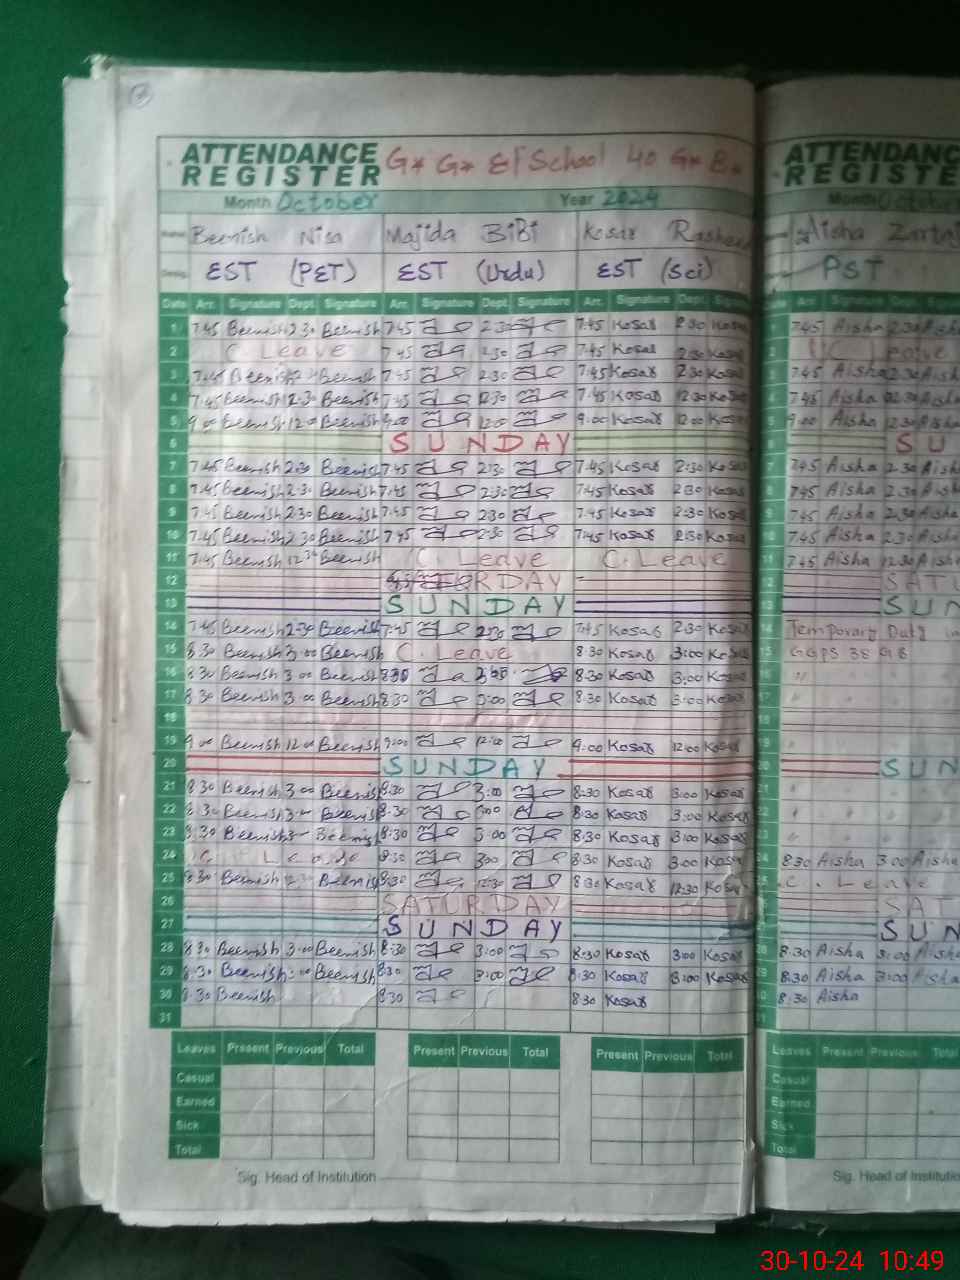 ATTENDANCE REGISTER G* G* El School 40 G* B*
Month October Year 2024
Beenish Nisa Majida BiBi Kosar Rasheed
Desig. EST (PET) EST (Urdu) EST (Sci)
Date Arr. Signature Dept. Signature Arr. Signature Dept. Signature Arr. Signature Dept. Signature
1 7.45 Beenish 2.30 Beenish 7.45 2.30 7.45 Kosar 2.30 Kosar
2 C. Leave 7.45 2.30 7.45 Kosar 2.30 Kosar
3 7.45 Beenish Beenish 7.45 2.30 7.45 Kosar 2.30 Kosar
4 7.45 Beenish 12.30 Beenish 7.45 12.30 7.45 Kosar 12.30 Kosar
5 9.00 Beenish 12.00 Beenish 9.00 12.00 9.00 Kosar 12.00 Kosar
6 SUNDAY
7 7.45 Beenish 2.30 Beenish 7.45 2.30 7.45 Kosar 2.30 Kosar
8 7.45 Beenish 2.30 Beenish 7.45 2.30 7.45 Kosar 2.30 Kosar
9 7.45 Beenish 2.30 Beenish 7.45 2.30 7.45 Kosar 2.30 Kosar
10 7.45 Beenish 2.30 Beenish 7.45 2.30 7.45 Kosar 2.30 Kosar
11 7.45 Beenish 12.30 Beenish C. Leave C. Leave
12 SATURDAY
13 SUNDAY
14 7.45 Beenish 2.30 Beenish 7.45 2.30 7.45 Kosar 2.30 Kosar
15 8.30 Beenish 3.00 Beenish C. Leave 8.30 Kosar 3.00 Kosar
16 8.30 Beenish 3.00 Beenish 8.30 8.30 Kosar 3.00 Kosar
17 8.30 Beenish 3.00 Beenish 8.30 3.00 8.30 Kosar 3.00 Kosar
18
19 9.00 Beenish 12.00 Beenish 9.00 12.00 9.00 Kosar 12.00 Kosar
20 SUNDAY
21 8.30 Beenish 3.00 Beenish 8.30 3.00 8.30 Kosar 3.00 Kosar
22 8.30 Beenish 3.00 Beenish 8.30 3.00 8.30 Kosar 3.00 Kosar
23 8.30 Beenish 3.00 Beenish 8.30 3.00 8.30 Kosar 3.00 Kosar
24 C. Leave 8.30 3.00 8.30 Kosar 3.00 Kosar
25 8.30 Beenish 12.30 Beenish 8.30 12.30 8.30 Kosar 12.30 Kosar
26 SATURDAY
27 SUNDAY
28 8.30 Beenish 3.00 Beenish 8.30 3.00 8.30 Kosar 3.00 Kosar
29 8.30 Beenish 3.00 Beenish 8.30 3.00 8.30 Kosar 3.00 Kosar
30 8.30 Beenish 8.30 8.30 Kosar
31
Leaves Present Previous Total Present Previous Total Present Previous Total
Casual
Earned
Sick
Total
Sig. Head of Institution
ATTENDANC
REGISTE
Month October
Aisha Zartaj
PST
Arr. Signature Dept.
1 7.45 Aisha 2.30 Aish
2 C. Leave
3 7.45 Aisha 2.30 Aish
4 7.45 Aisha 12.30 Aish
5 9.00 Aisha 12.30 Aish
6 SU
7 7.45 Aisha 2.30 Aish
8 7.45 Aisha 2.30 Aish
9 7.45 Aisha 2.30 Aish
10 7.45 Aisha 2.30 Aish
11 7.45 Aisha 12.30 Aish
12 SATU
13 SUN
14 Temporary Duty in
15 GGPS 38 GB
16 "
17 "
18
19 "
20 SUN
21 "
22 "
23 "
24 8.30 Aisha 3.00 Aisha
25 C. Leave
26 SAT
27 SUN
28 8.30 Aisha 3.00 Aisha
29 8.30 Aisha 3.00 Aisha
30 8.30 Aisha
31
Leaves Present Previous Total
Casual
Earned
Sick
Total
Sig. Head of Institutio
30-10-24 10:49